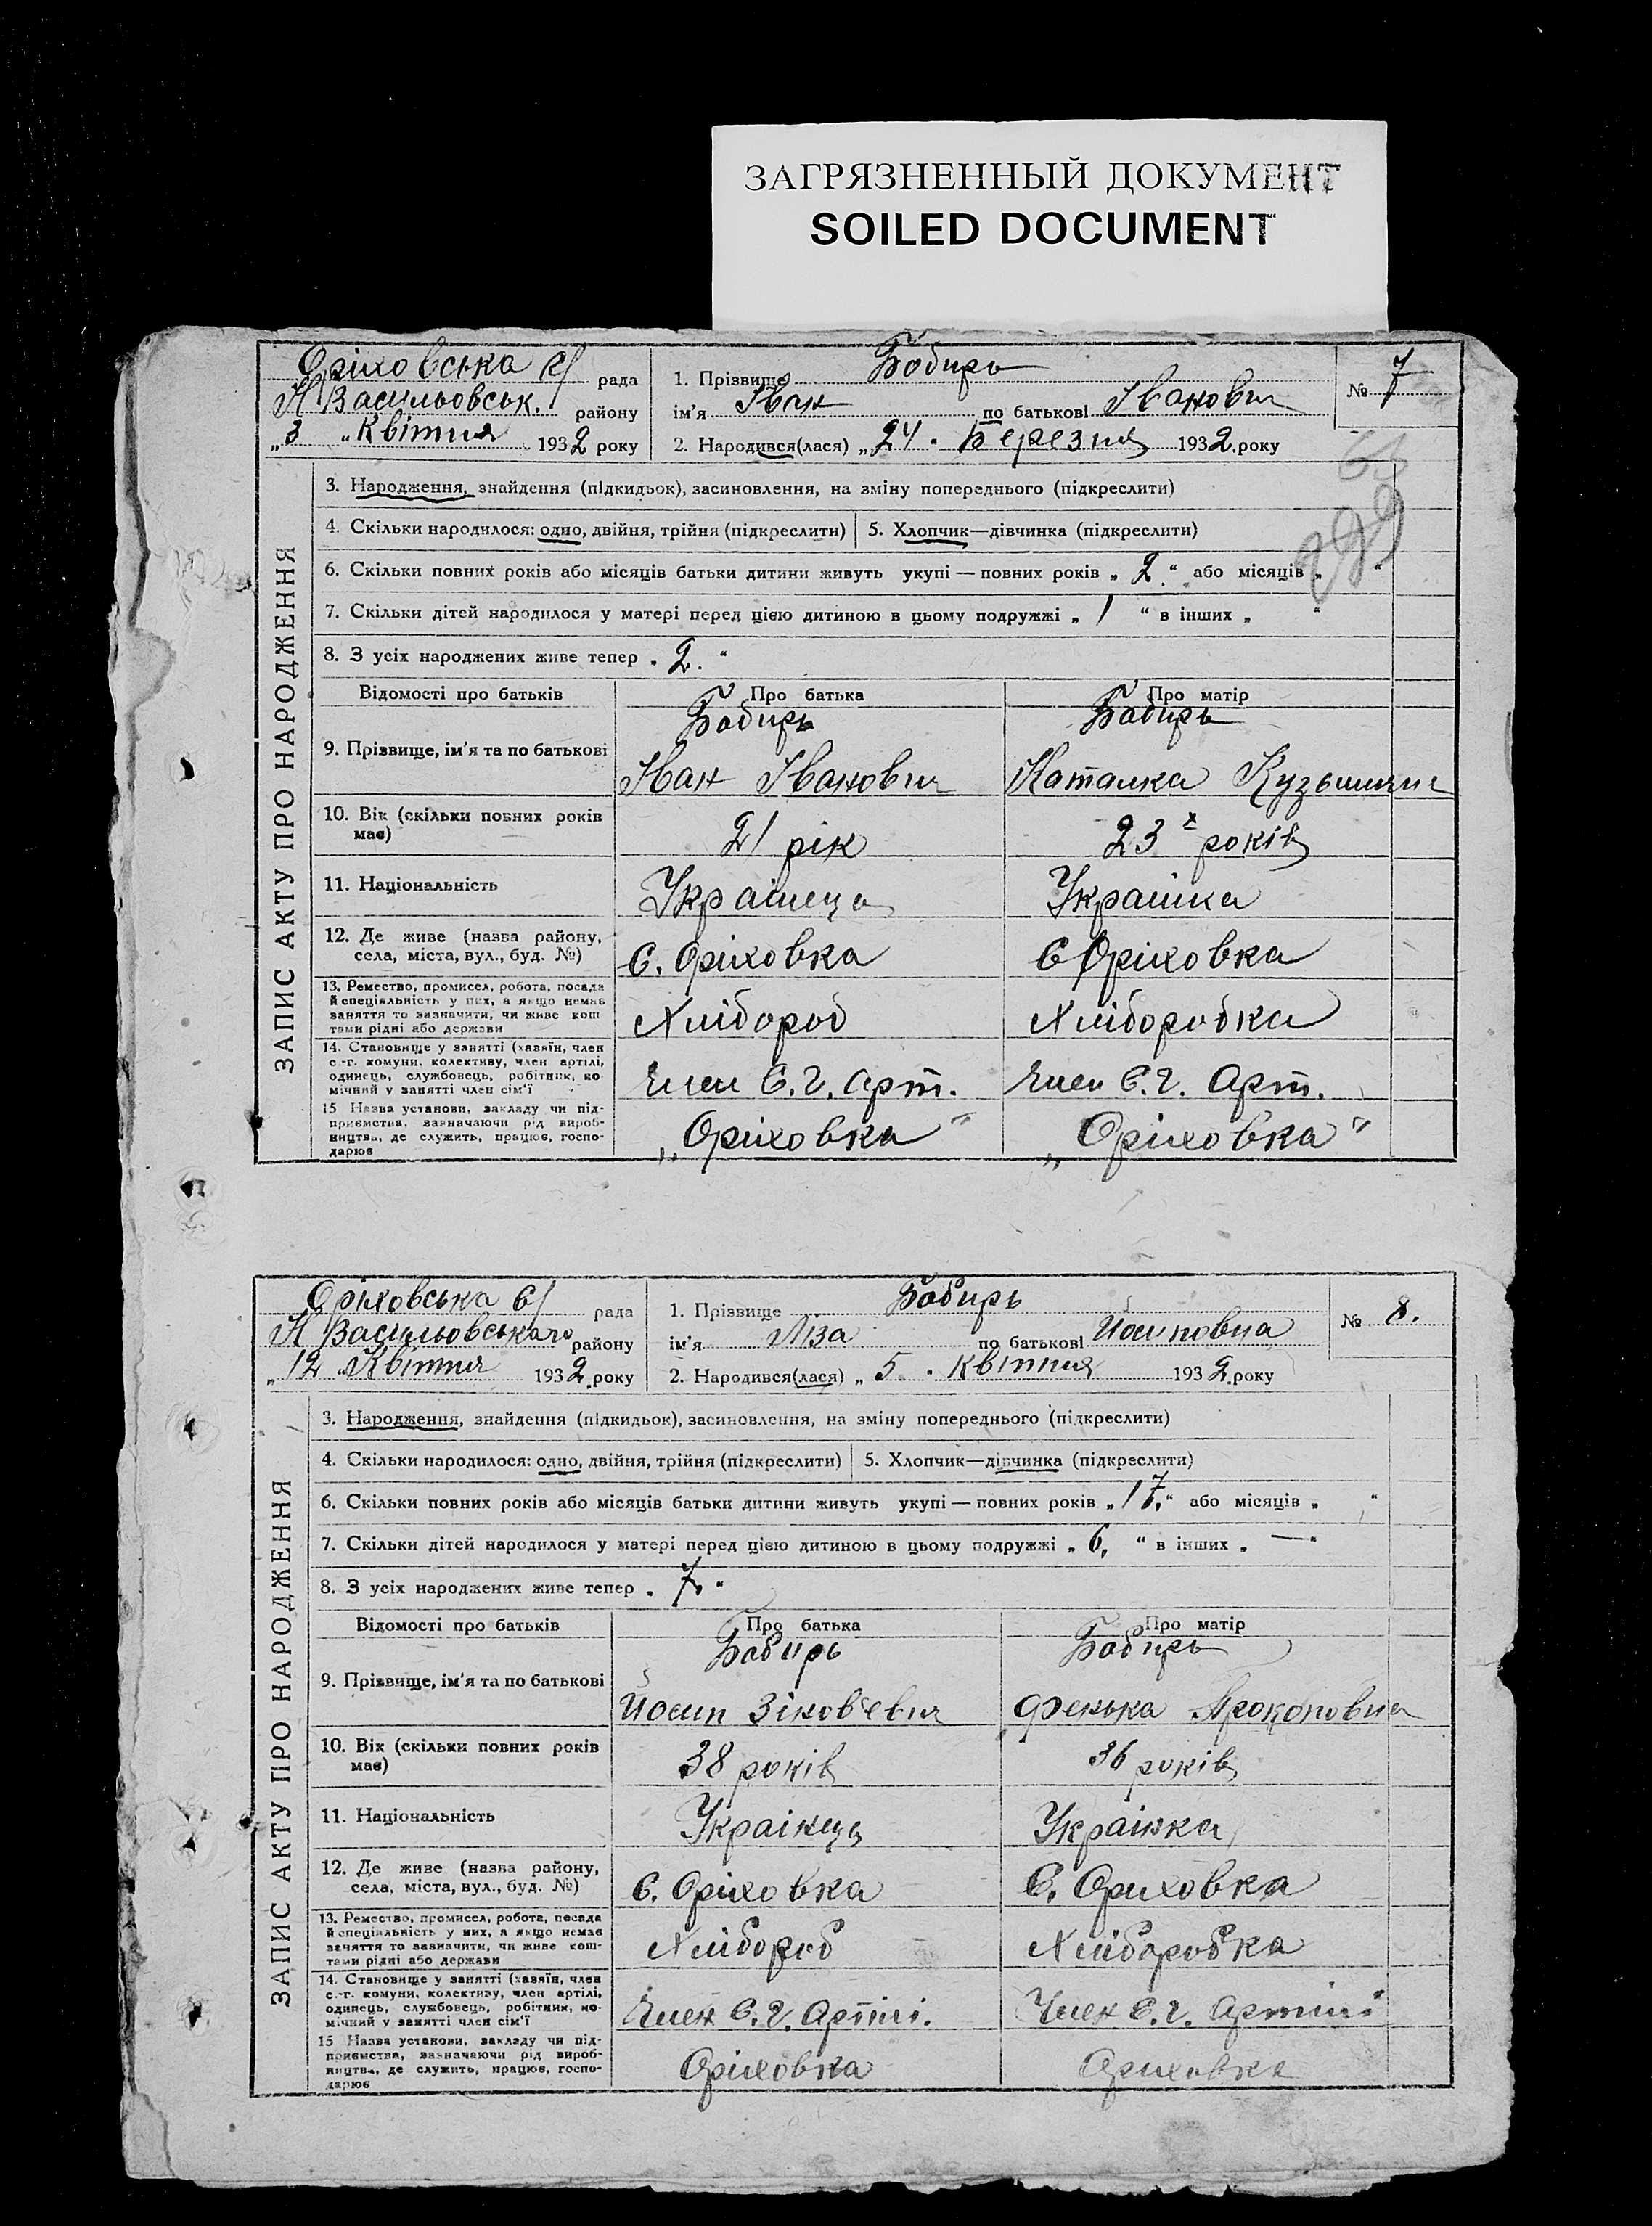 ЗАГРЯЗНЕННЫЙ ДОКУМЕНТ
SOILED DOCUMENT
Оріховська с/ рада
Н Васильовськ. району
„3 „ Квітня 1932 року
1. Прізвище Бобирь
ім'я Іван по батькові Іванович
2. Народився(лася) „24 . Березня 1932. року
№ 7
ЗАПИС АКТУ ПРО НАРОДЖЕННЯ
3. Народження, знайдення (підкидьок), засиновлення, на зміну попереднього (підкреслити)
4. Скільки народилося: одно, двійня, трійня (підкреслити) 5. Хлопчик—дівчинка (підкреслити)
6. Скільки повних років або місяців батьки дитини живуть укупі — повних років „ 2. “ або місяців „ “
7. Скільки дітей народилося у матері перед цією дитиною в цьому подружжі „ 1 “ в інших „ “
8. З усіх народжених живе тепер „ 2. “
Відомості про батьків Про батька Про матір
9. Прізвище, ім'я та по батькові Бобирь Бобирь
Іван Іванович Наталка Кузьминична
10. Вік (скільки повних років має) 21 рік 23х років
11. Національність Українець Українка
12. Де живе (назва району, села, міста, вул., буд. №) С. Оріховка С Оріховка
13. Ремество, промисел, робота, посада
й спеціяльність у них, а якщо немає
заняття то зазначити, чи живе кош
тами рідні або держави Хлібороб Хліборобка
14. Становище у занятті (хазяїн, член
с.-г. комуни, колективу, член артілі,
одинець, службовець, робітник, по
мічний у занятті член сім'ї Член С.Г. Арт. Член С.Г. Арт.
15 Назва установи, закладу чи під-
приємства, зазначаючи рід вироб-
ництва, де служить, працює, госпо-
дарює „Оріховка“ „Оріховка“
Оріховська с/ рада
Н Васильовського району
„12 „ Квітня 1932. року
1. Прізвище Бобирь
ім'я Ліза по батькові Йосиповна
2. Народився(лася) „ 5 . Квітня 1932. року
№ 8.
ЗАПИС АКТУ ПРО НАРОДЖЕННЯ
3. Народження, знайдення (підкидьок), засиновлення, на зміну попереднього (підкреслити)
4. Скільки народилося: одно, двійня, трійня (підкреслити) 5. Хлопчик—дівчинка (підкреслити)
6. Скільки повних років або місяців батьки дитини живуть укупі — повних років „ 17. “ або місяців „ “
7. Скільки дітей народилося у матері перед цією дитиною в цьому подружжі „ 6. “ в інших „ — “
8. З усіх народжених живе тепер „ 7. “
Відомості про батьків Про батька Про матір
9. Прізвище, ім'я та по батькові Бобирь Бобирь
Йосип Зіновъевич Фенька Прокоповна
10. Вік (скільки повних років має) 38 років 36 років
11. Національність Українець Українка
12. Де живе (назва району, села, міста, вул., буд. №) С. Оріховка С. Оріховка
13. Ремество, промисел, робота, посада
й спеціяльність у них, а якщо немає
заняття то зазначити, чи живе кош-
тами рідні або держави Хлібороб Хліборобка
14. Становище у занятті (хазяїн, член
с.-г. комуни, колективу, член артілі,
одинець, службовець, робітник, по-
мічний у занятті член сім'ї Член С.Г. Артілі. Член С.Г. Артілі
15 Назва установи, закладу чи під-
приємства, зазначаючи рід вироб-
ництва, де служить, працює, госпо-
дарює Оріховка Оріховка